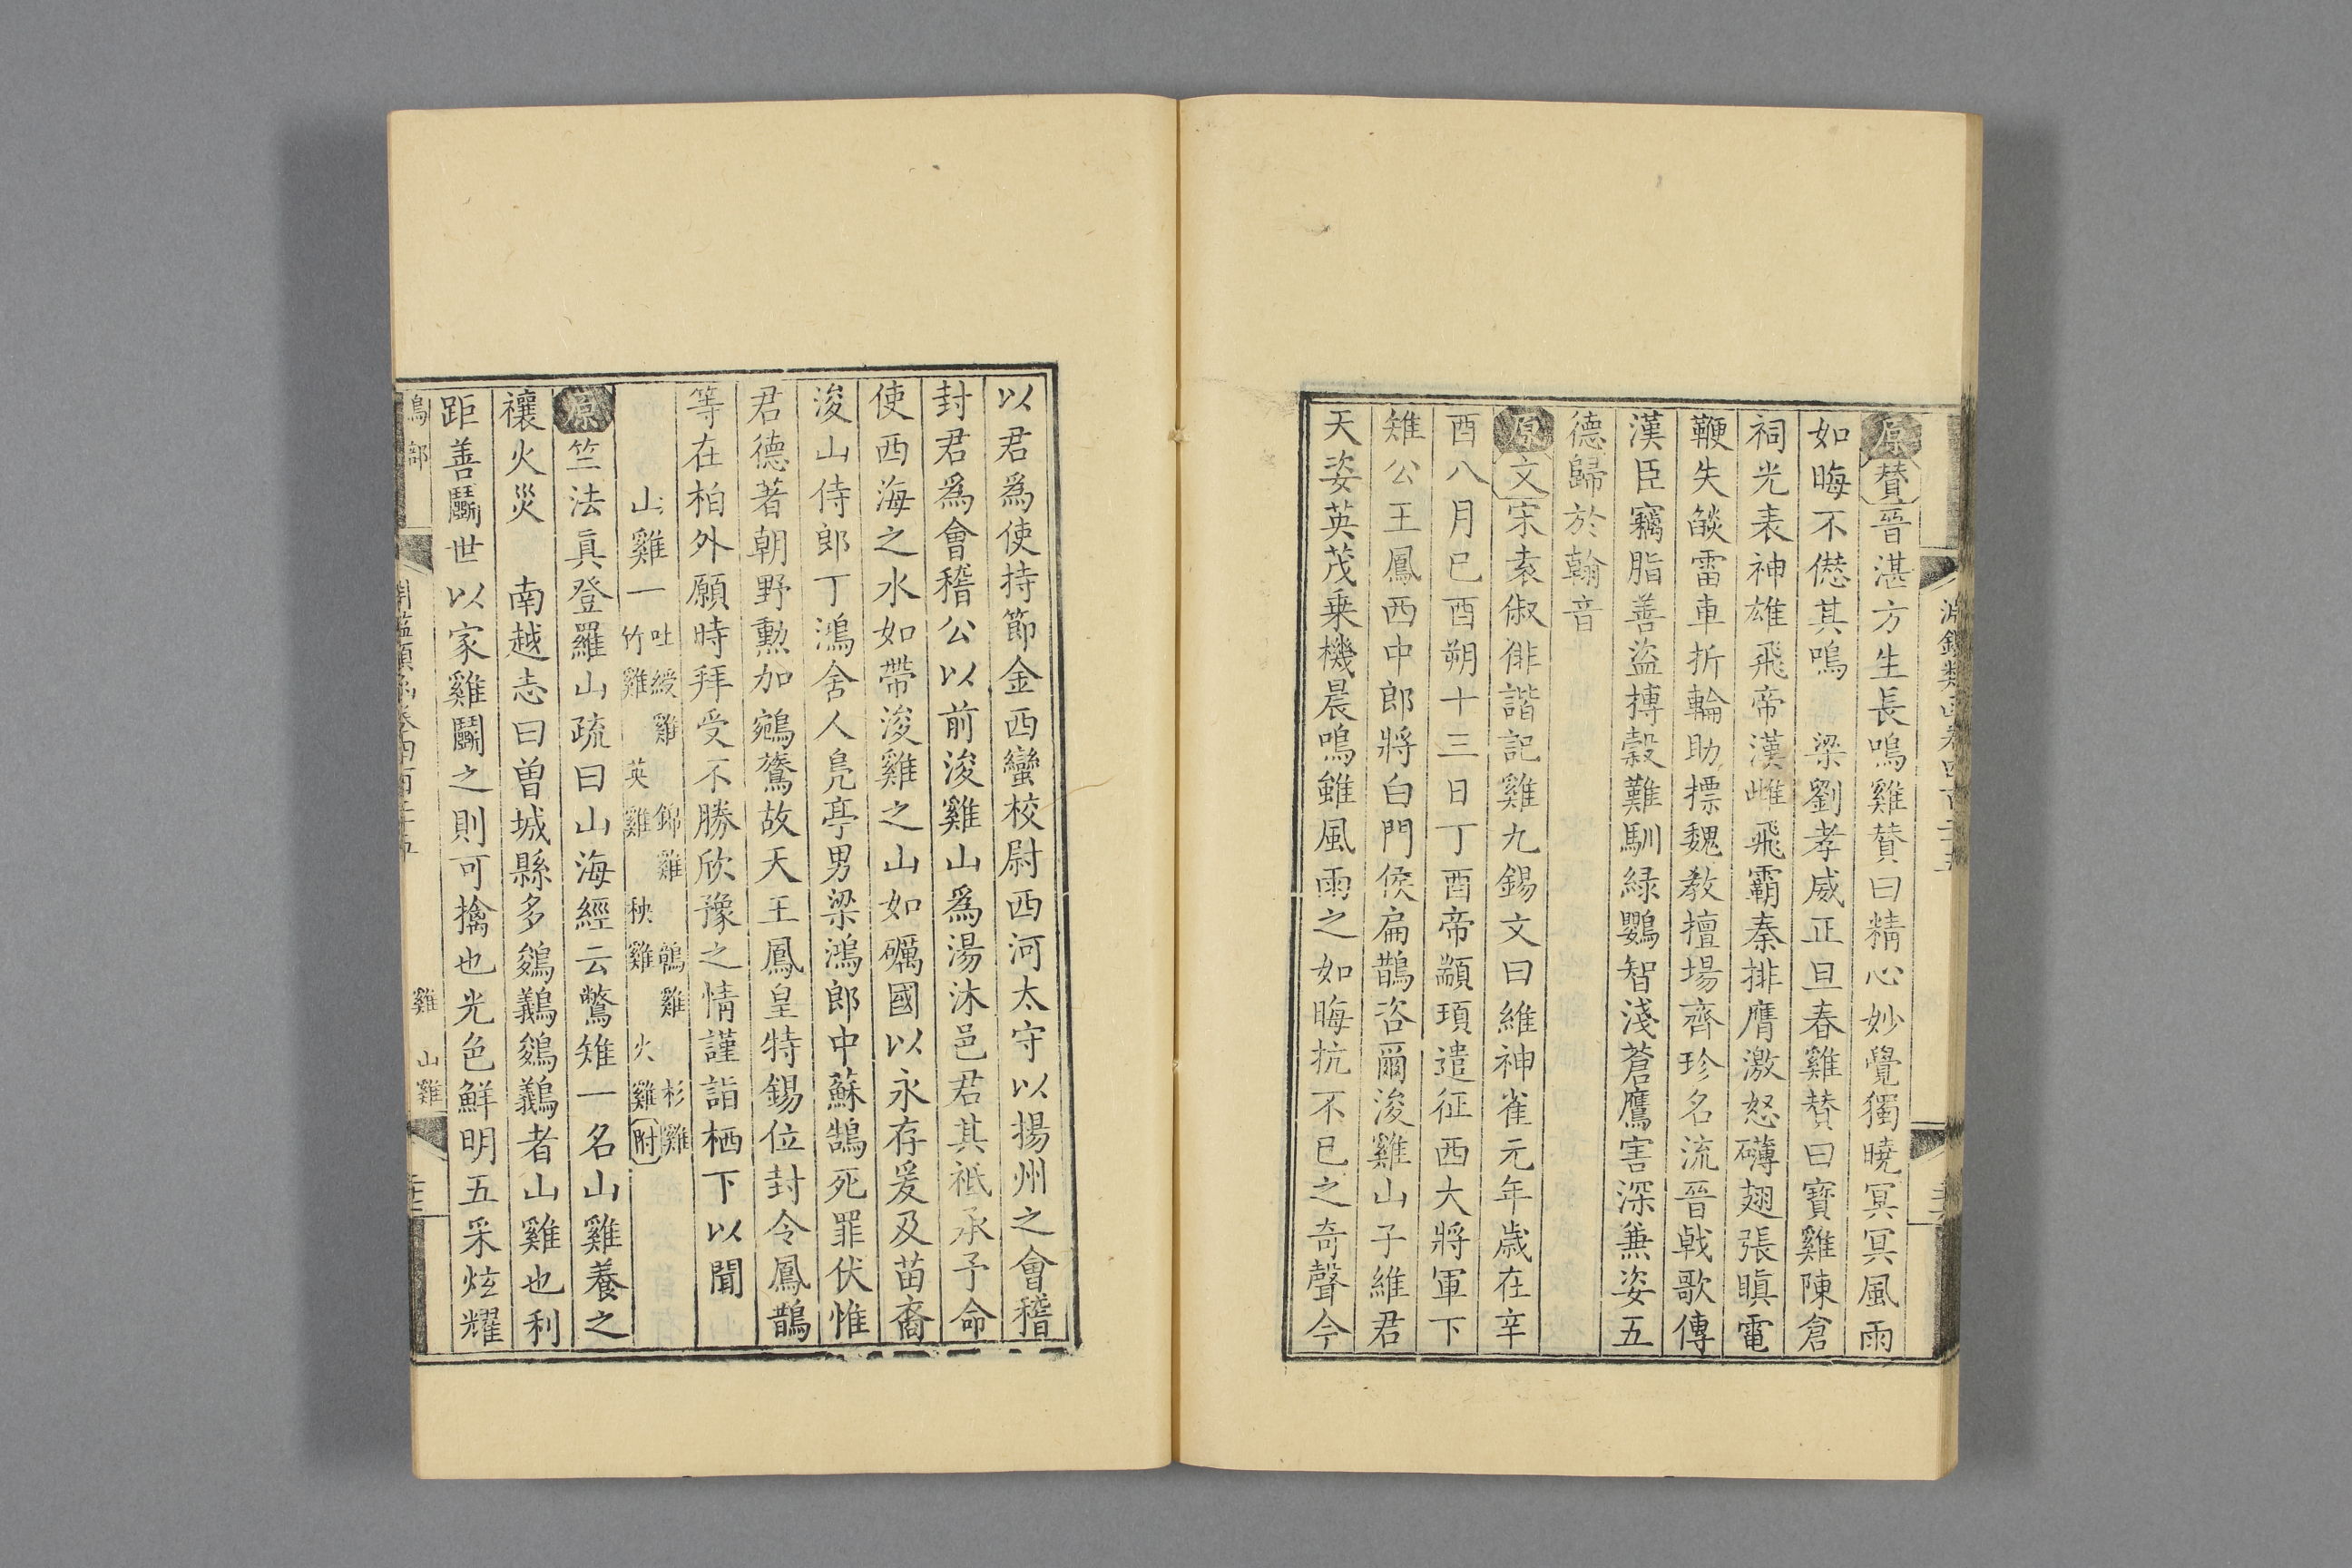 原贊晉湛方生長鳴雞贊曰精心妙覺獨曉冥冥風雨
如晦不愆其鳴 梁劉孝威正旦春雞贊曰寶雞陳倉
祠光表神雄飛帝漢雌飛霸秦排膺激怒礡翅張瞋電
鞭失燄雷車折輪助摽魏敎擅場齊珍名流晉戟歌傳
漢臣竊脂善盜摶穀難馴綠鸚智淺蒼鷹害深兼姿五
德歸於翰音
原文宋袁俶俳諧記雞九錫文曰維神雀元年歲在辛
酉八月巳酉朔十三日丁酉帝顓頊遣征西大將軍下
雉公王鳳西中郎將白門侯扁鵲咨爾浚雞山子維君
天姿英茂乘機晨鳴雖風雨之如晦抗不已之奇聲今
以君爲使持節金西蠻校尉西河太守以揚州之會稽
封君爲會稽公以前浚雞山爲湯沐邑君其祗承予命
使西海之水如帶浚雞之山如礪國以永存爰及苗裔
浚山侍郎丁鴻舍人鳧亭男梁鴻郎中蘇鵠死罪伏惟
君德著朝野勲加鵷鷟故天王鳳皇特錫位封令鳳鵲
等在柏外願時拜受不勝欣豫之情謹詣栖下以聞
山雞一 吐綬雞 錦雞 鶡雞 杉雞
竹雞 英雞 秧雞 火雞附
原竺法真登羅山疏曰山海經云鷩雉一名山雞養之
禳火災 南越志曰曾城縣多鵕鸃鵕鸃者山雞也利
距善鬭世以家雞鬭之則可擒也光色鮮明五采炫耀
鳥部
雞 山雞